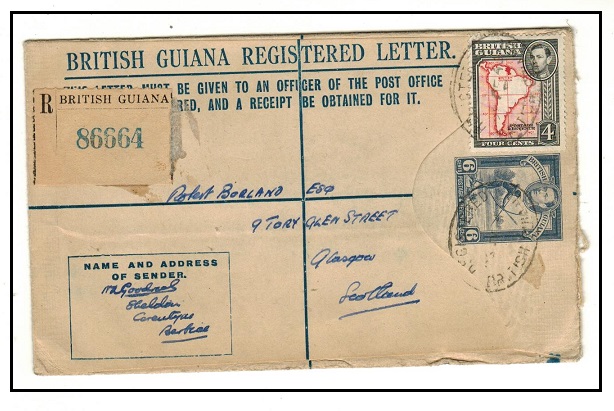 BRITISH GUIANA REGISTERED LETTER.
THIS LETTER MUST BE GIVEN TO AN OFFICER OF THE POST OFFICE
RED, AND A RECEIPT BE OBTAINED FOR IT.
R BRITISH GUIANA
86664
BRITISH GUIANA
4
FOUR CENTS
6
6
BRITISH
GUIANA
Robert BORLAND ESQ
9 TORYGLEN STREET
Glasgow
Scotland
NAME AND ADDRESS
OF SENDER.
Sheldon
Corentyne
Berbice